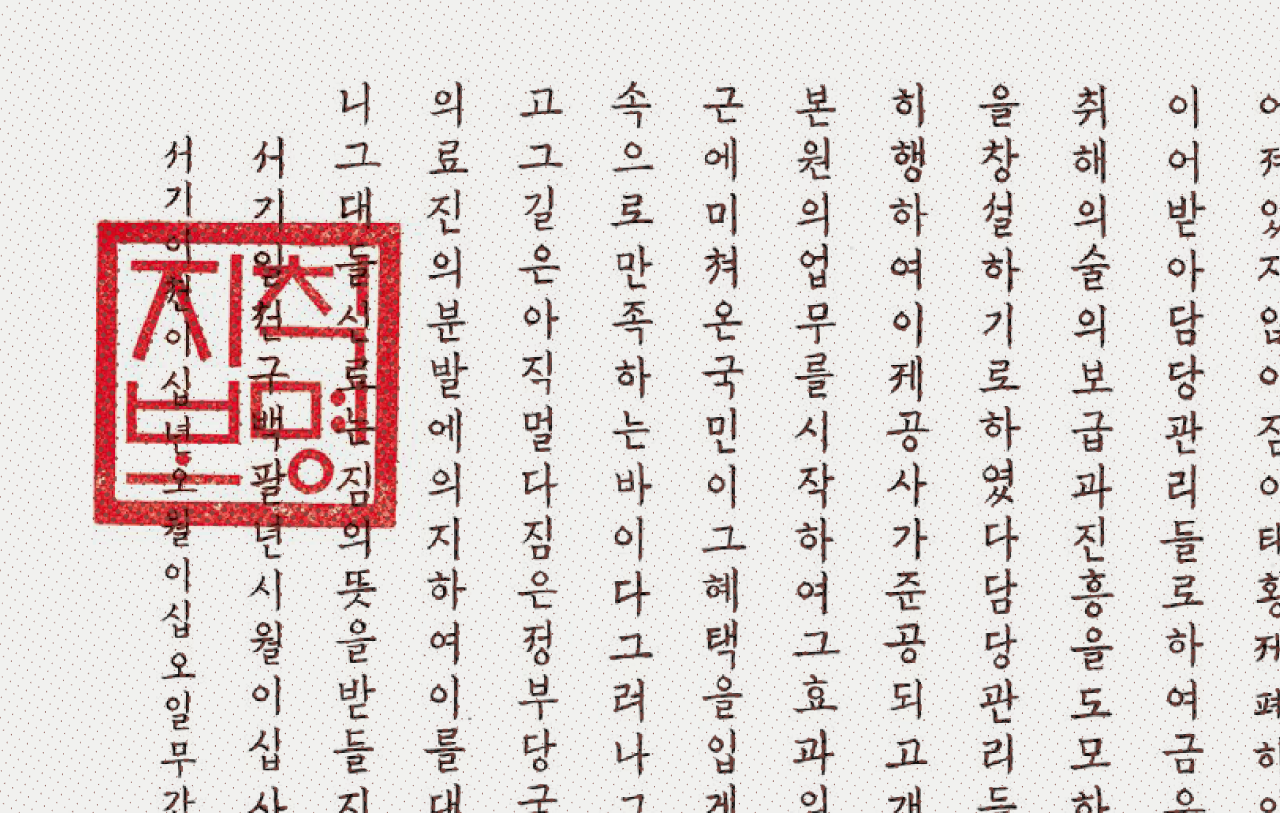 이어받아담당관리들로하여금
취해의술의보급과진흥을도모하
을창설하기로하였다담당관리들
히행하여이제공사가준공되고개
본원의업무를시작하여그효과의
근에미쳐온국민이그혜택을입게
속으로만족하는바이다그러나그
고그길은아직멀다짐은정부당국
의료진의분발에의지하여이를대
니그대들신료는짐의뜻을받들지
서기일천구백팔년시월이십사
서기이천이십년오월이십오일무
칙명지보